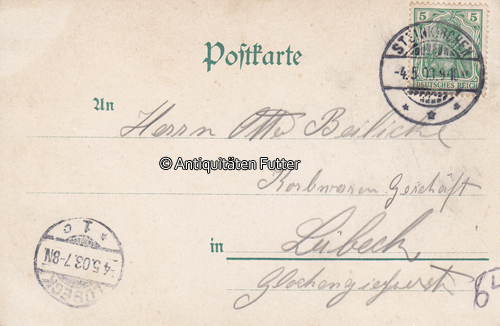 5 5
DEUTSCHES REICH
STEINKIRCHEN
-4.5.03.
Postkarte
An
Herrn Otto Beilicke
© Antiquitäten Futter
Korbwaren Geschäft
in Lübeck
Glockengießerstr
64
LÜBECK
-4.5.03.7-8N.
* 1 c